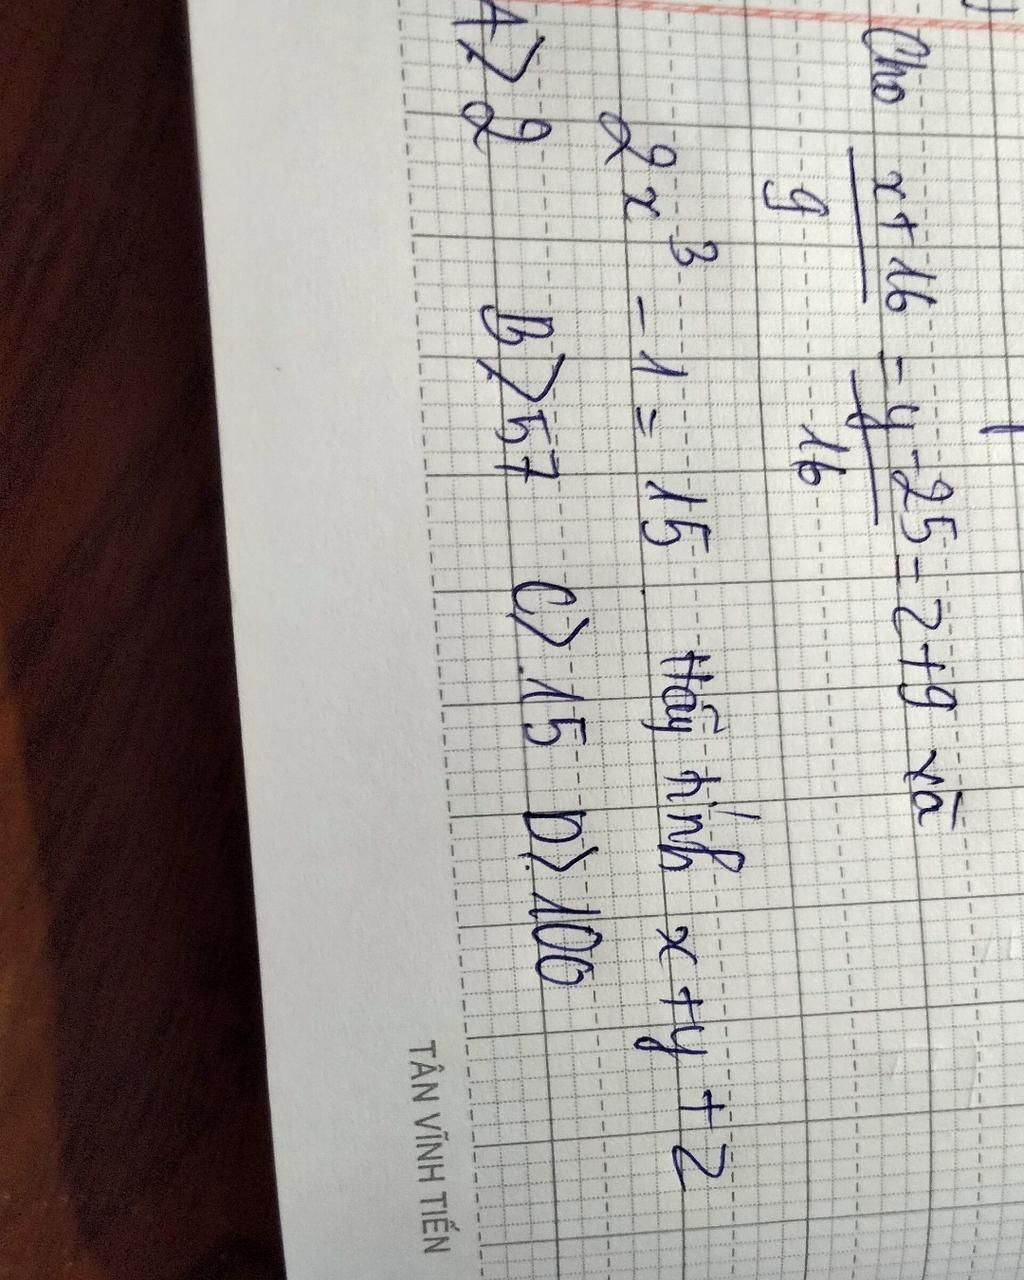 Cho x+16 = y-25 = z+9 và
9 16
2x³ - 1 = 15 Hãy tính x+y+z
A> 2 B> 57 C> 15 D> 100
TÂN VĨNH TIẾN